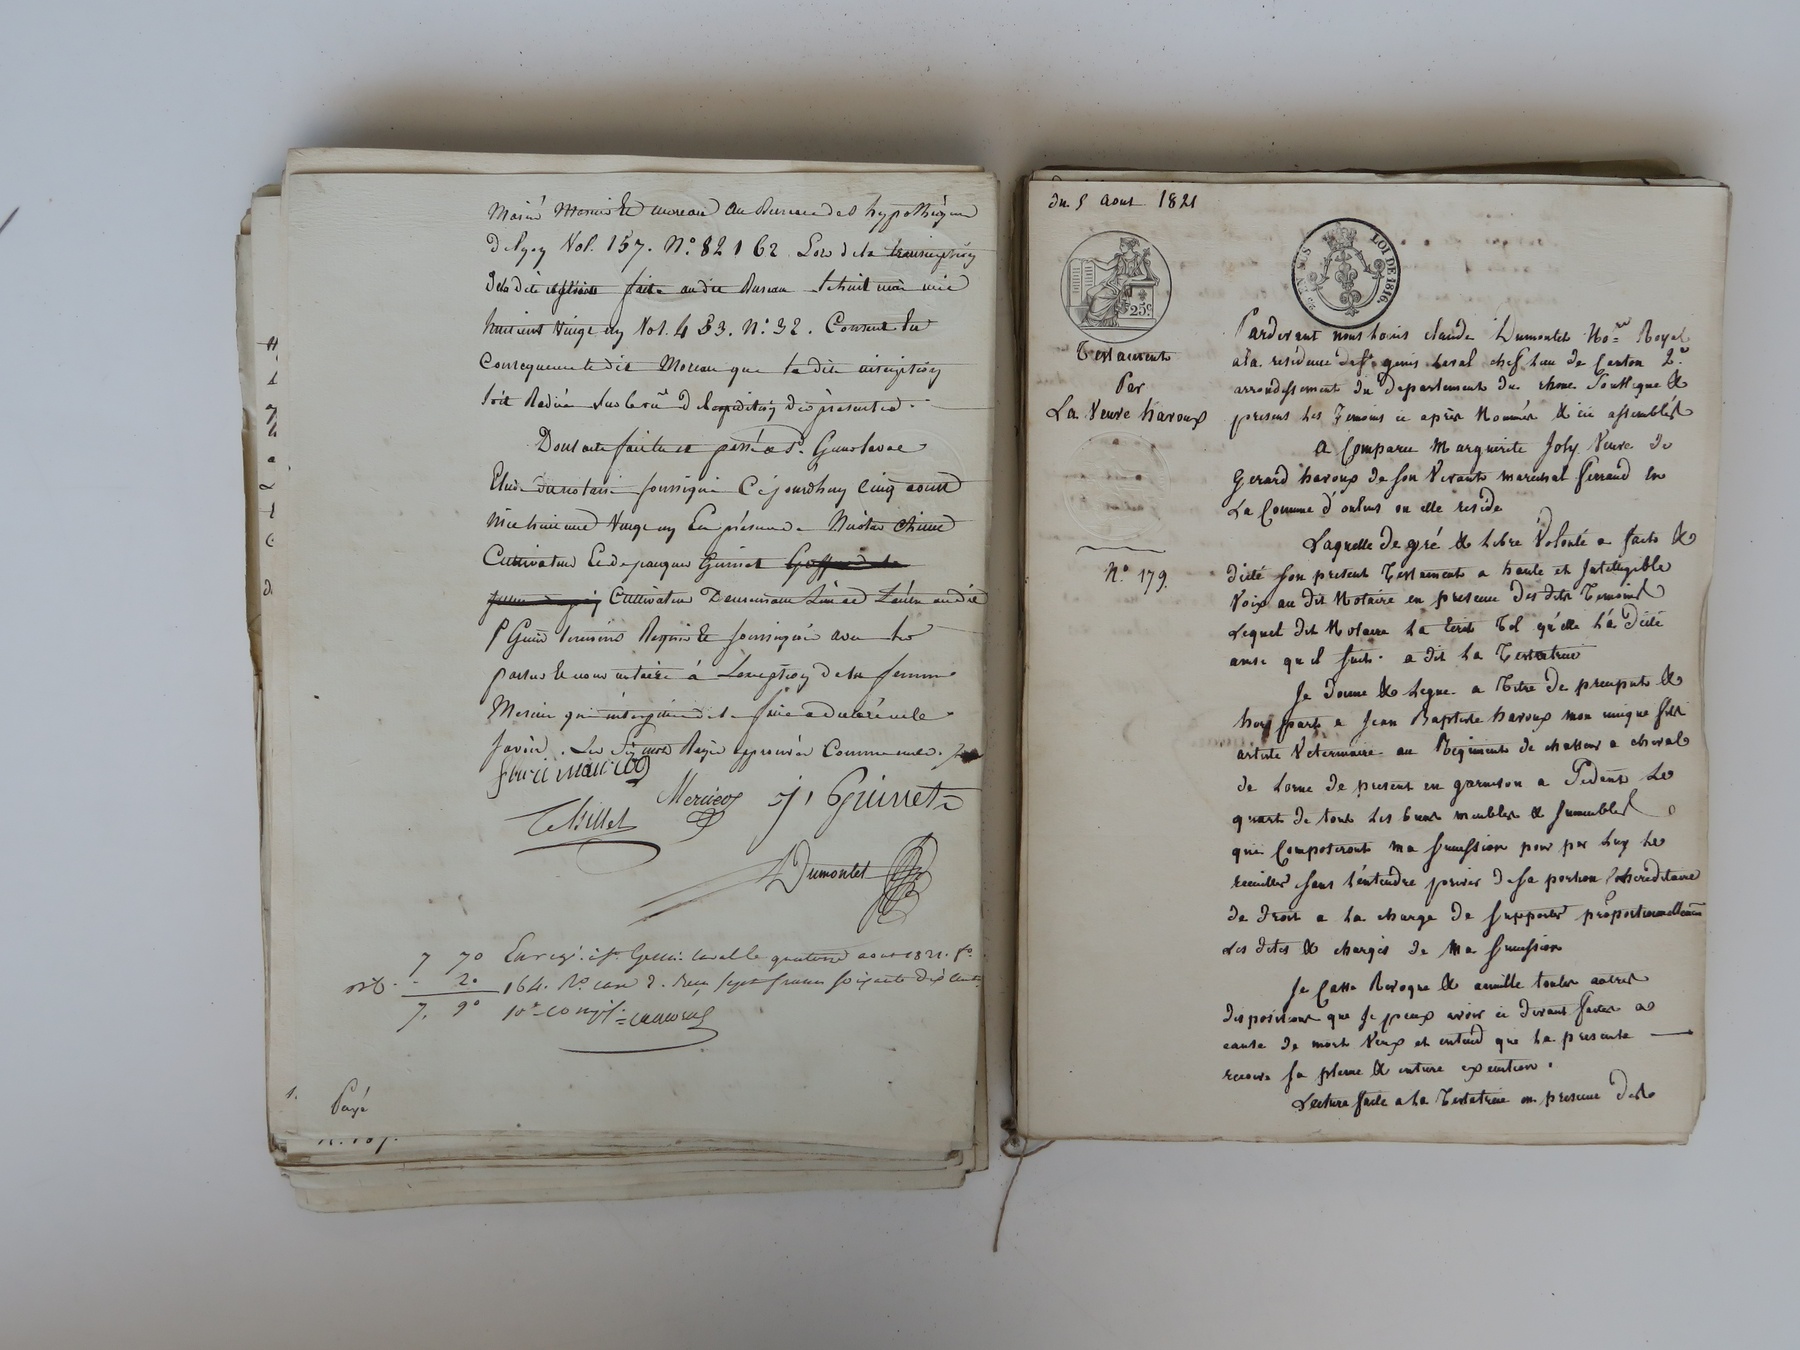 Vol. 157. N.° 82 162. Lors de la transcription
faite au dit Bureau le huit mai mil
huit cent vingt un Vol. 453. N.° 32. Consent En
Consequence le dit Moreau que la dite inscription
soit Radiée sur le vû d'expedition des présentes.
Dont acte fait lu et passé a St. Genis laval
Etude du notaire soussigné Cejourdhuy Cinq aout
mil huit cent Vingt un En présence de
Cultivateur Et de jacques Guinet
Cultivateur Demeurant
témoins Requis Et soussignés avec les
parties Et nous notaire à L'exception de la femme
Mercier qui interpellée de le faire a declaré ne le
savoir. Les Rayés approuvés Comme nuls.
Mercier J. Guinet
Dumontet
7 70 Enregé. à St. Genis laval le quatorze aout 1821. fo.
20 164. Ro. case 2. Reçu sept francs soixante dix cent.
7. 90
Payé
du 5 aout 1821
LOI DE 1816.
25c
Testament
Par
La Veuve haroux
N.° 179.
Pardevant nous Louis claude Dumontet No.re Royal
a la residence de St genis Laval chef lieu de Canton 2.e
arrondissement du Departement du rhone Soussigné &
presens Les Temoins ci après Nommés & ici assemblés
A Comparu Marguerite Joly Veuve de
Gerard haroux de son Vivant marechal ferrand en
La Comme d'oulins ou elle reside
Laquelle de gré & Libre Volonté a fait &
dicté son present Testament a haute et Intelligible
Voix au dit Notaire en presence des dits Temoins
Lequel dit Notaire La Ecrit Tel qu'elle L'a Dicté
ainsi qu'il suit. a dit La Testatrice
Je Donne & Legue a Titre de preciput &
hors part a Jean Baptiste haroux mon unique fils
artiste Veterinaire au Regiment de chasseur a cheval
de present en garnison a Le
quart de tout Les biens meubles & Immeubles
qui Composeront ma Succession pour par Luy Le
recuillir sans L'entendre priver de sa portion hereditaire
de Droit a La charge de supporter proportionnellement
Les dettes & charges de Ma Succession
Je Casse Revoque & annulle toutes autres
dispositions que Je peux avoir ci Devant faites a
cause de mort Veux et entend que La presente
recoive sa pleine & entiere execution.
Lecture faite a La Testatrice en presence des